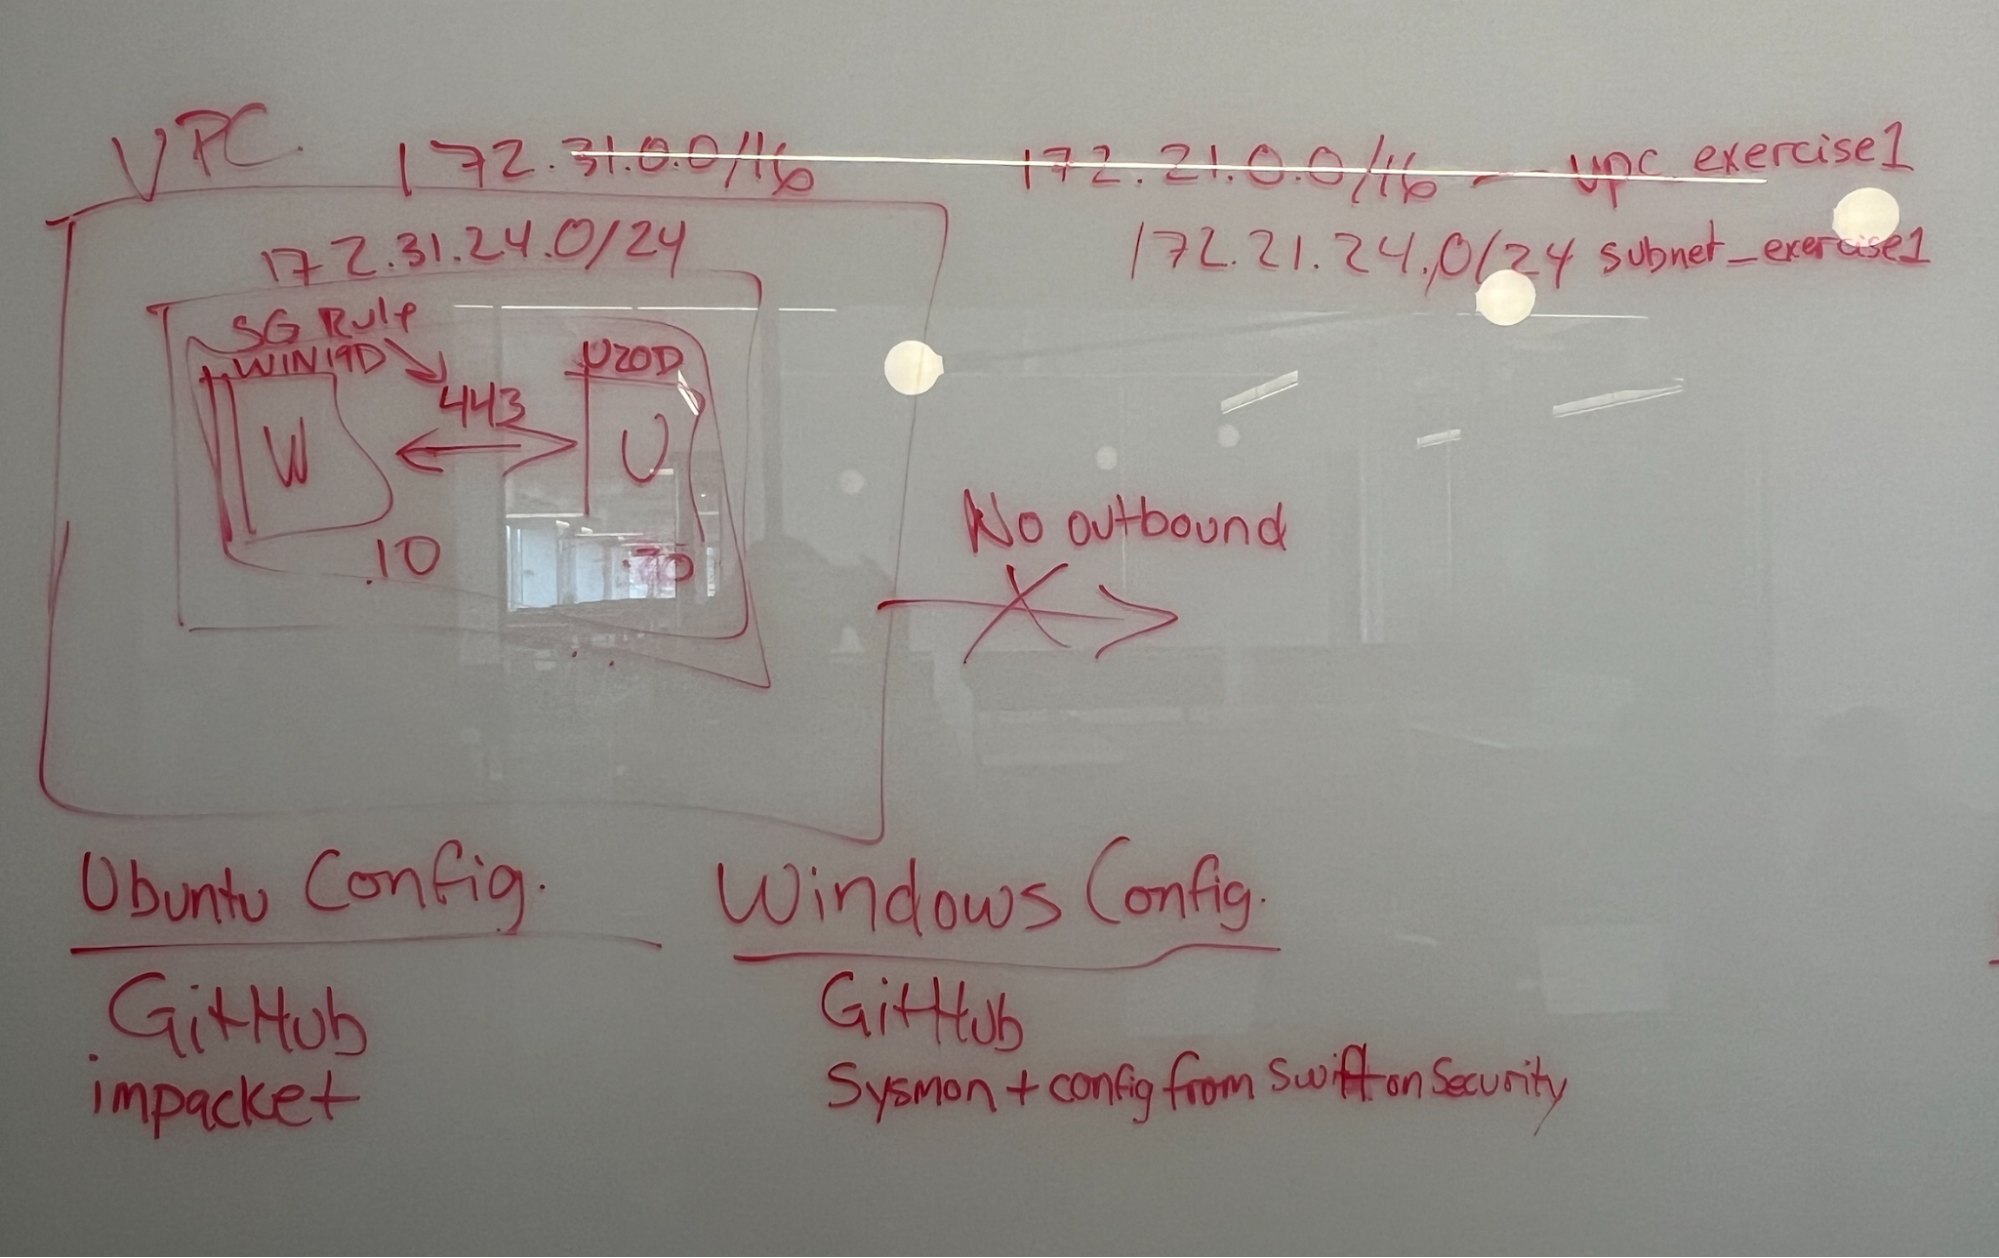 VPC. 172.31.0.0/16
172.21.0.0/16 — vpc_exercise1
172.31.24.0/24
172.21.24.0/24 subnet_exercise1
SG Rule
WIN19D
U20D
443
W
U
.10
No outbound
Ubuntu Config.
GitHub
impacket
Windows Config.
GitHub
Sysmon + config from Swift on Security